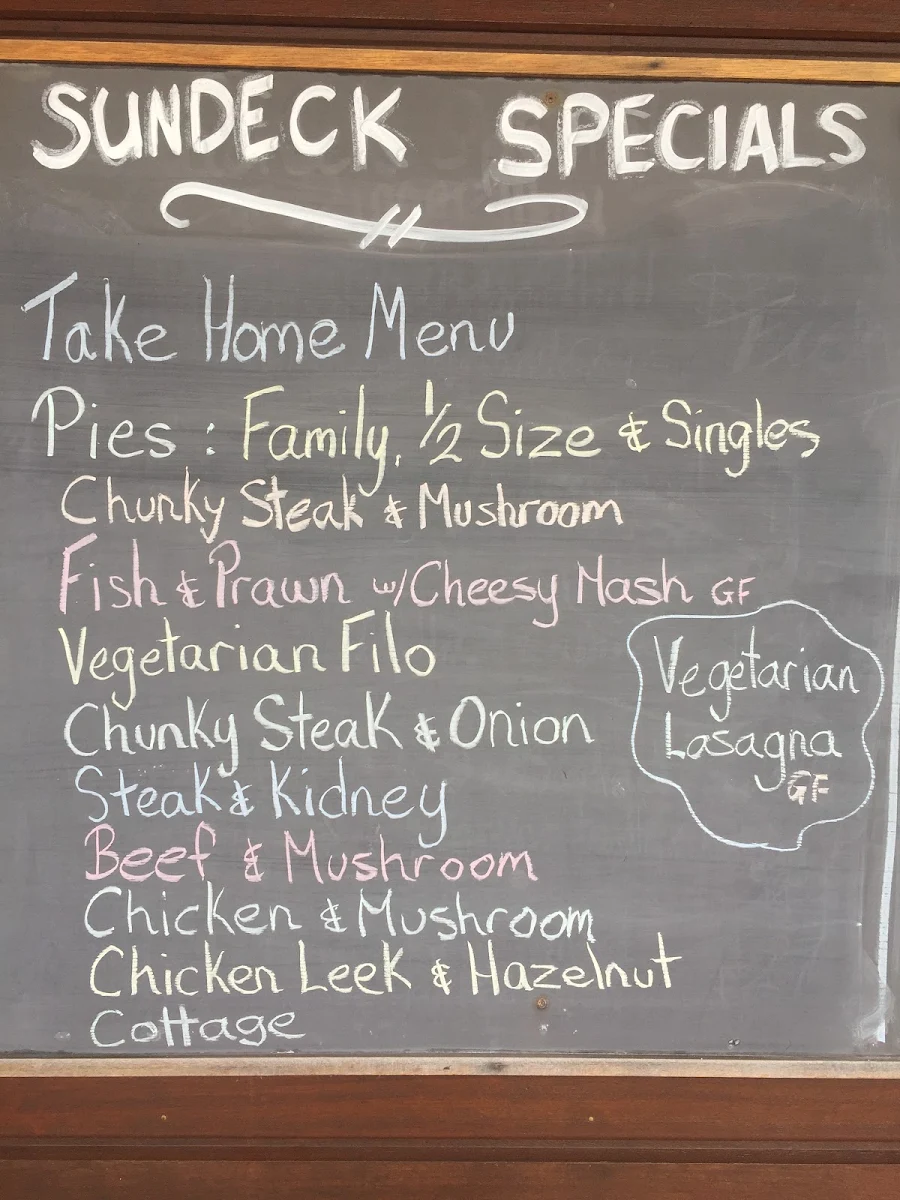 SUNDECK SPECIALS
Take Home Menu
Pies : Family, 1/2 Size & Singles
Chunky Steak & Mushroom
Fish & Prawn w/Cheesy Mash GF
Vegetarian Filo
Chunky Steak & Onion
Steak & Kidney
Beef & Mushroom
Chicken & Mushroom
Chicken Leek & Hazelnut
Cottage
Vegetarian
Lasagna
GF